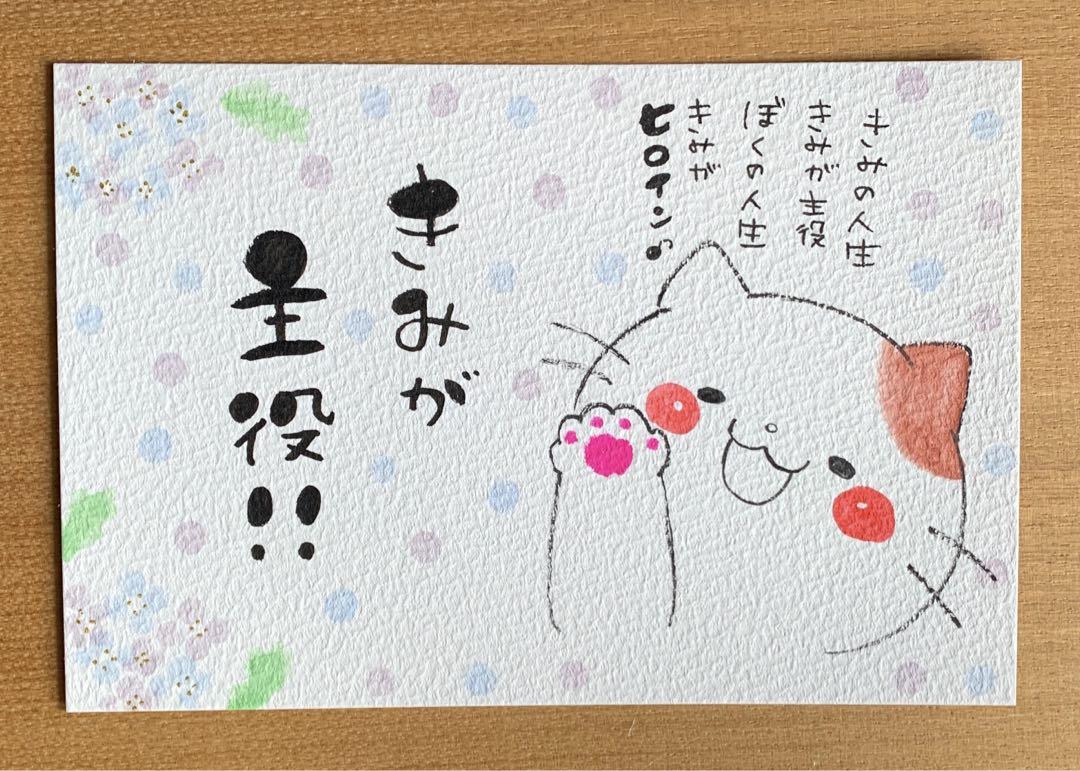 きみの人生
きみが主役
ぼくの人生
きみが
ヒロイン♪
きみが
主役!!